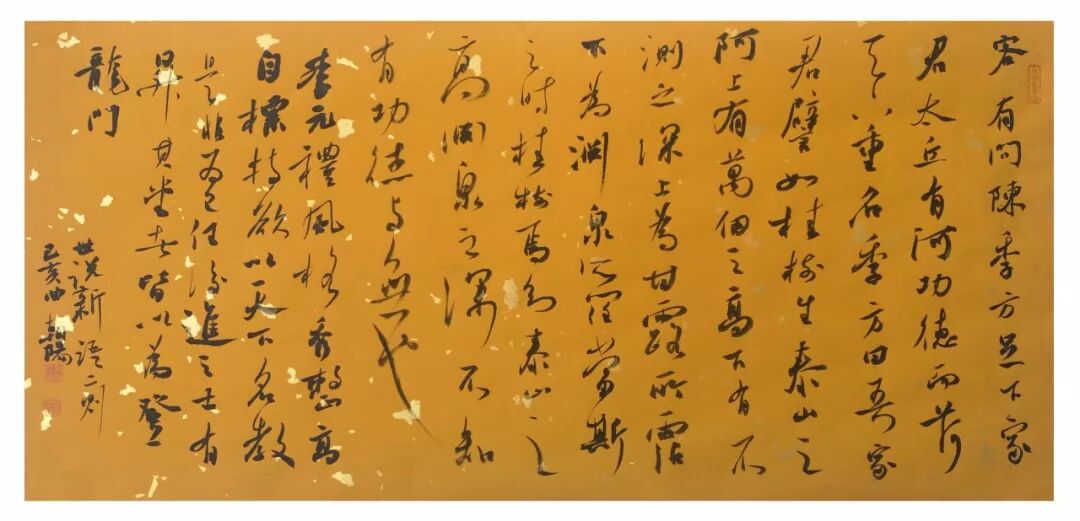 客有問陳季方足下家
君太丘有何功德而荷
天下重名季方曰吾家
君譬如桂樹生泰山之
阿上有萬仞之高下有不
測之深上為甘露所霑
下為淵泉所潤當斯
之時桂樹焉知泰山之
高淵泉之深不知
有功德與無也
李元禮風格秀整高
自標持欲以天下名教
是非為己任後進之士有
昇其堂者皆以為登
龍門
世說新語二則
己亥曲朝陽